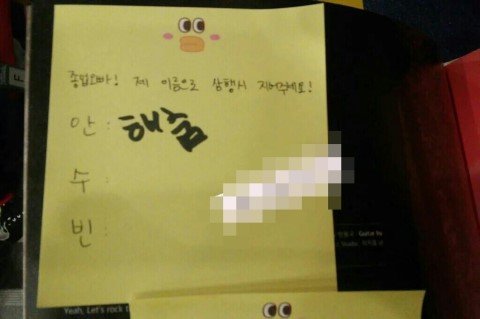 종업오빠! 제 이름으로 삼행시 지어주세요!
안 : 해줌
수 :
빈 :
Guitar by
Studio,
Yeah, Let's rock